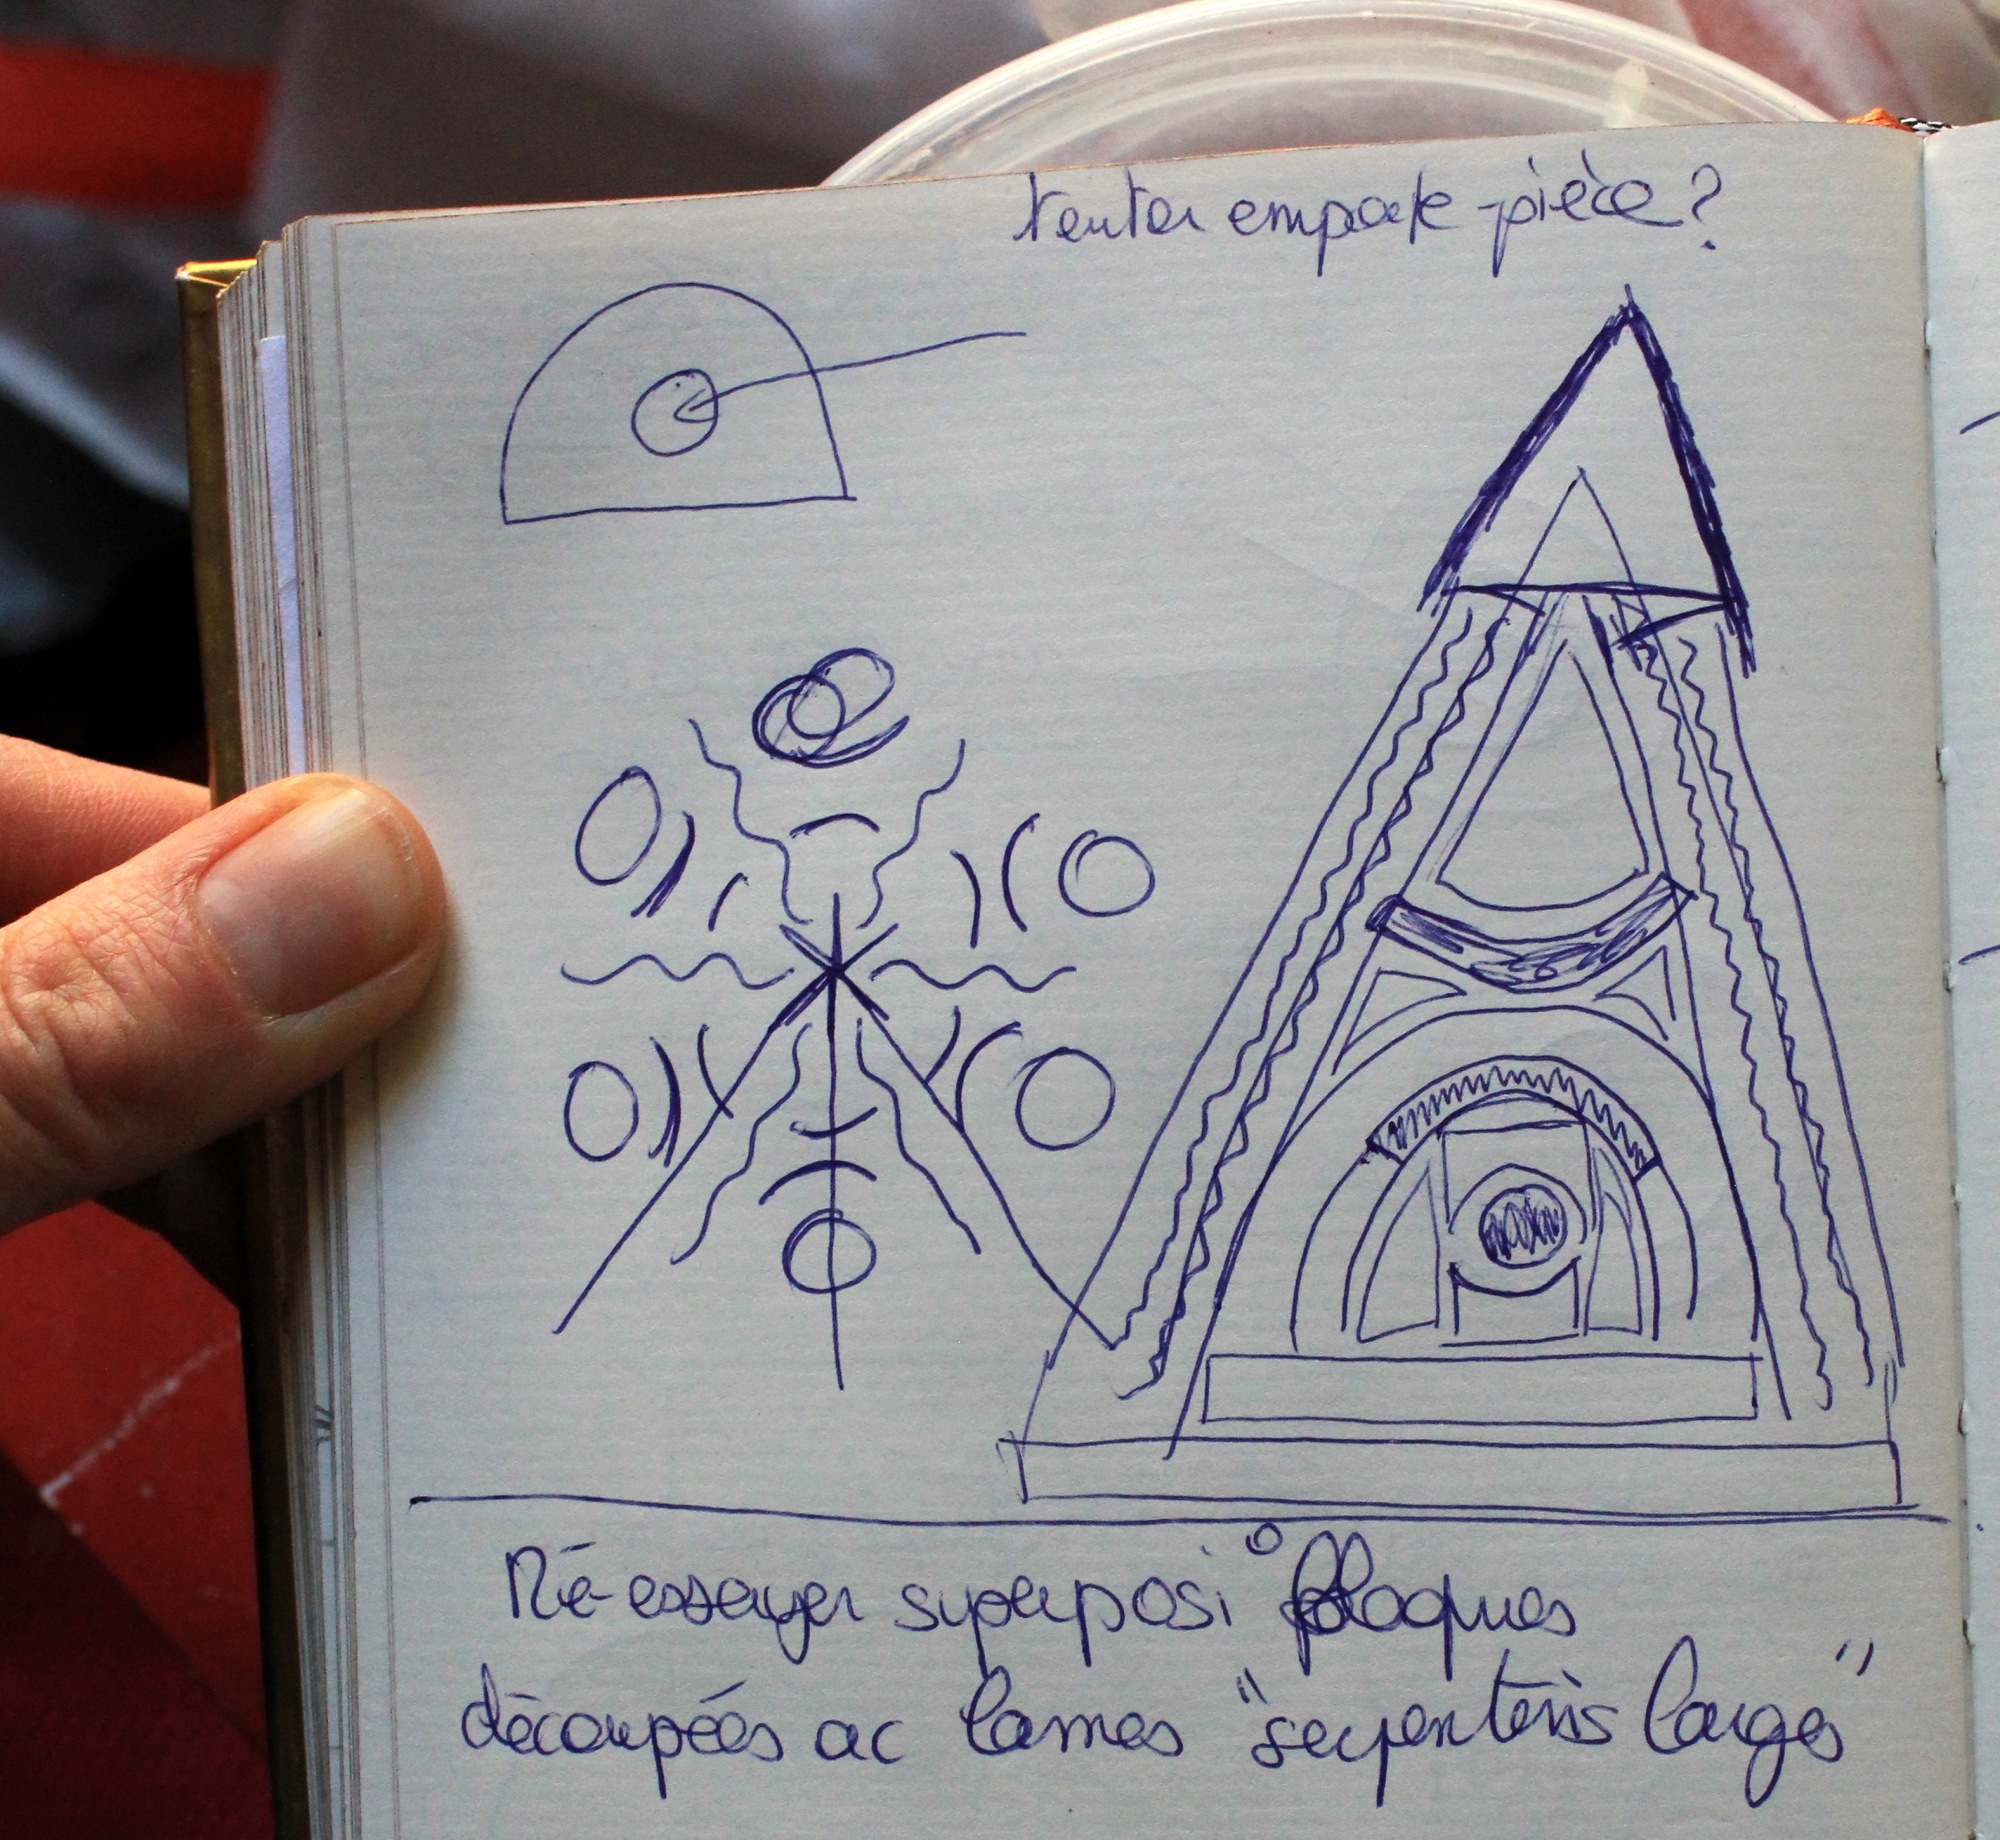 tenter emporte-pièce ?
Ré-essayer superposi° plaques
découpées ac lames "serpentins larges"